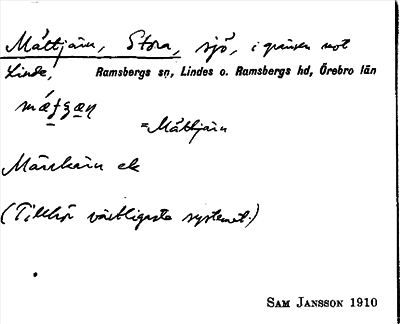 Måttjärn, Stora, sjö, i gränsen mot
Linde, Ramsbergs sn, Lindes o. Ramsbergs hd, Örebro län
= Måttjärn
ek
(Tillhör västligaste systemet.)
SAM JANSSON 1910